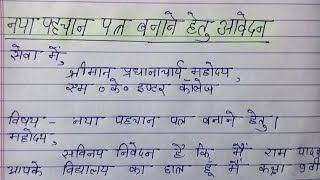 नया पहचान पत्र बनाने हेतु आवेदन
सेवा में,
श्रीमान प्रधानाचार्य महोदय,
एम ० के० इण्टर कॉलेज
विषय - नया पहचान पत्र बनाने हेतु।
महोदय,
सविनय निवेदन है कि मैं राम यादव
आपके विद्यालय का छात्र हूँ मैं कक्षा 9वी